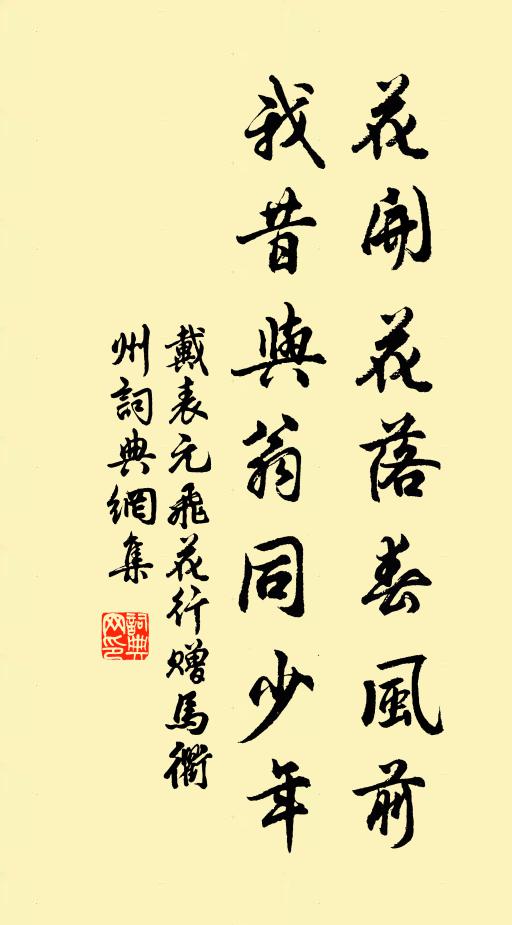 花開花落春風前
我昔與翁同少年
戴表元飛花行贈馬衢
州詞典網集
詞典网印